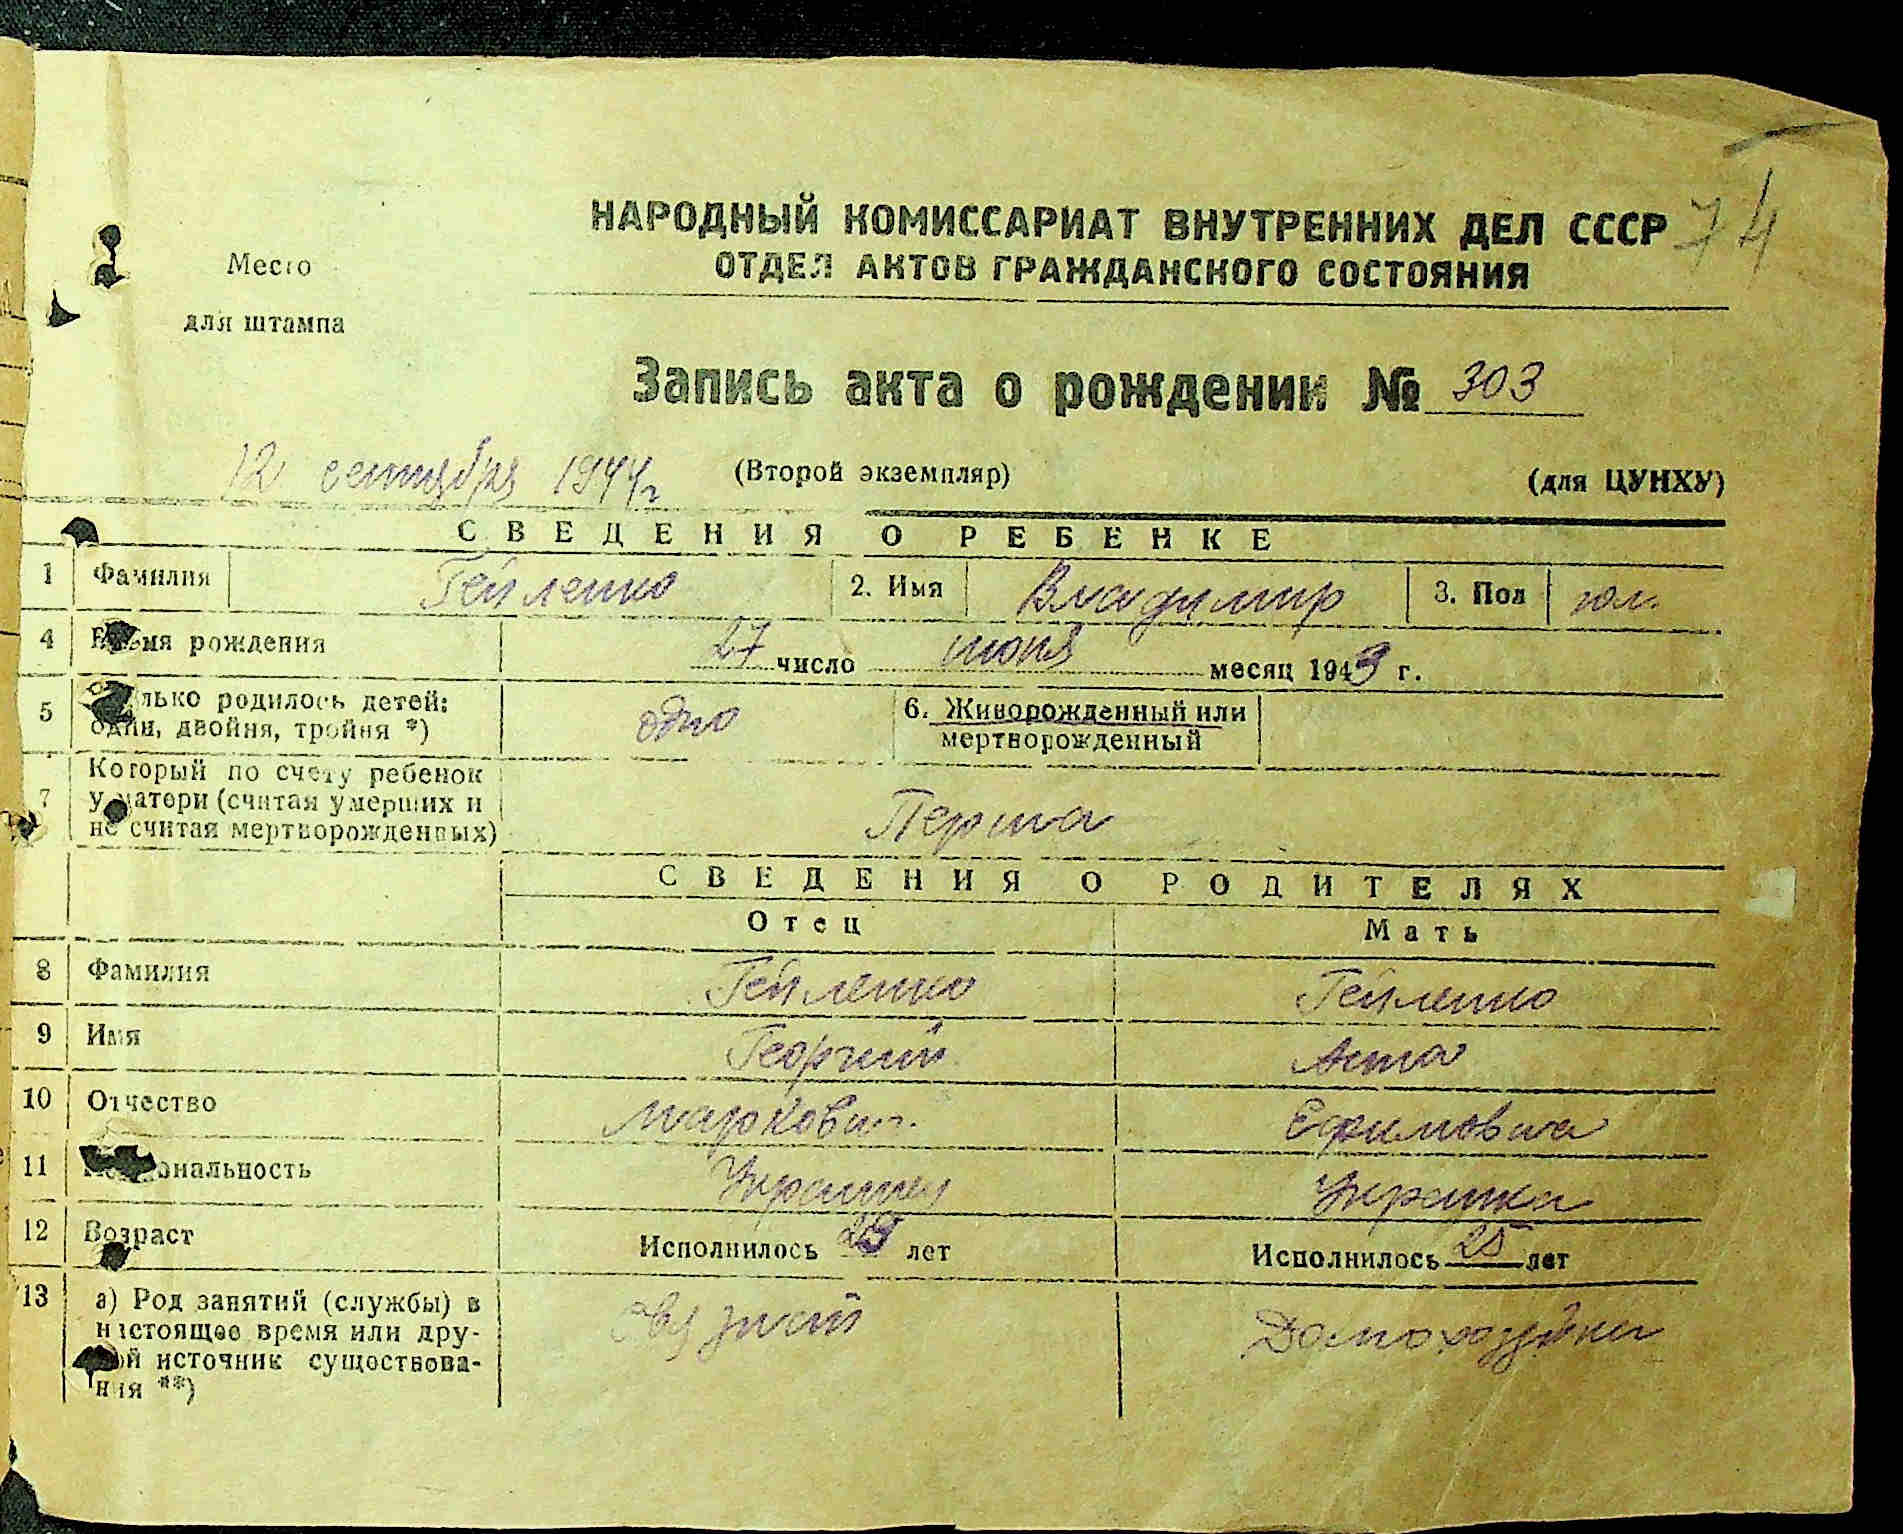 74
НАРОДНЫЙ КОМИССАРИАТ ВНУТРЕННИХ ДЕЛ СССР
ОТДЕЛ АКТОВ ГРАЖДАНСКОГО СОСТОЯНИЯ
Место
для штампа
Запись акта о рождении № 303
12 сентября 1944 г
(Второй экземпляр)
(для ЦУНХУ)
СВЕДЕНИЯ О РЕБЕНКЕ
1 Фамилия Гейленко 2. Имя Владимир 3. Пол
4 Время рождения 27 число июня месяц 1943 г.
5 Сколько родилось детей: один, двойня, тройня *) одно 6. Живорожденный или мертворожденный
7 Который по счету ребенок
у матери (считая умерших и
не считая мертворожденных)
Перша
СВЕДЕНИЯ О РОДИТЕЛЯХ
Отец Мать
8 Фамилия Гейленко Гейленко
9 Имя Георгий Анна
10 Отчество Маркович. Ефимовна
11 Национальность Украинец Украинка
12 Возраст Исполнилось 29 лет Исполнилось 25 лет
13 а) Род занятий (службы) в
настоящее время или дру-
гой источник существова-
ния **)
Домохозяйка